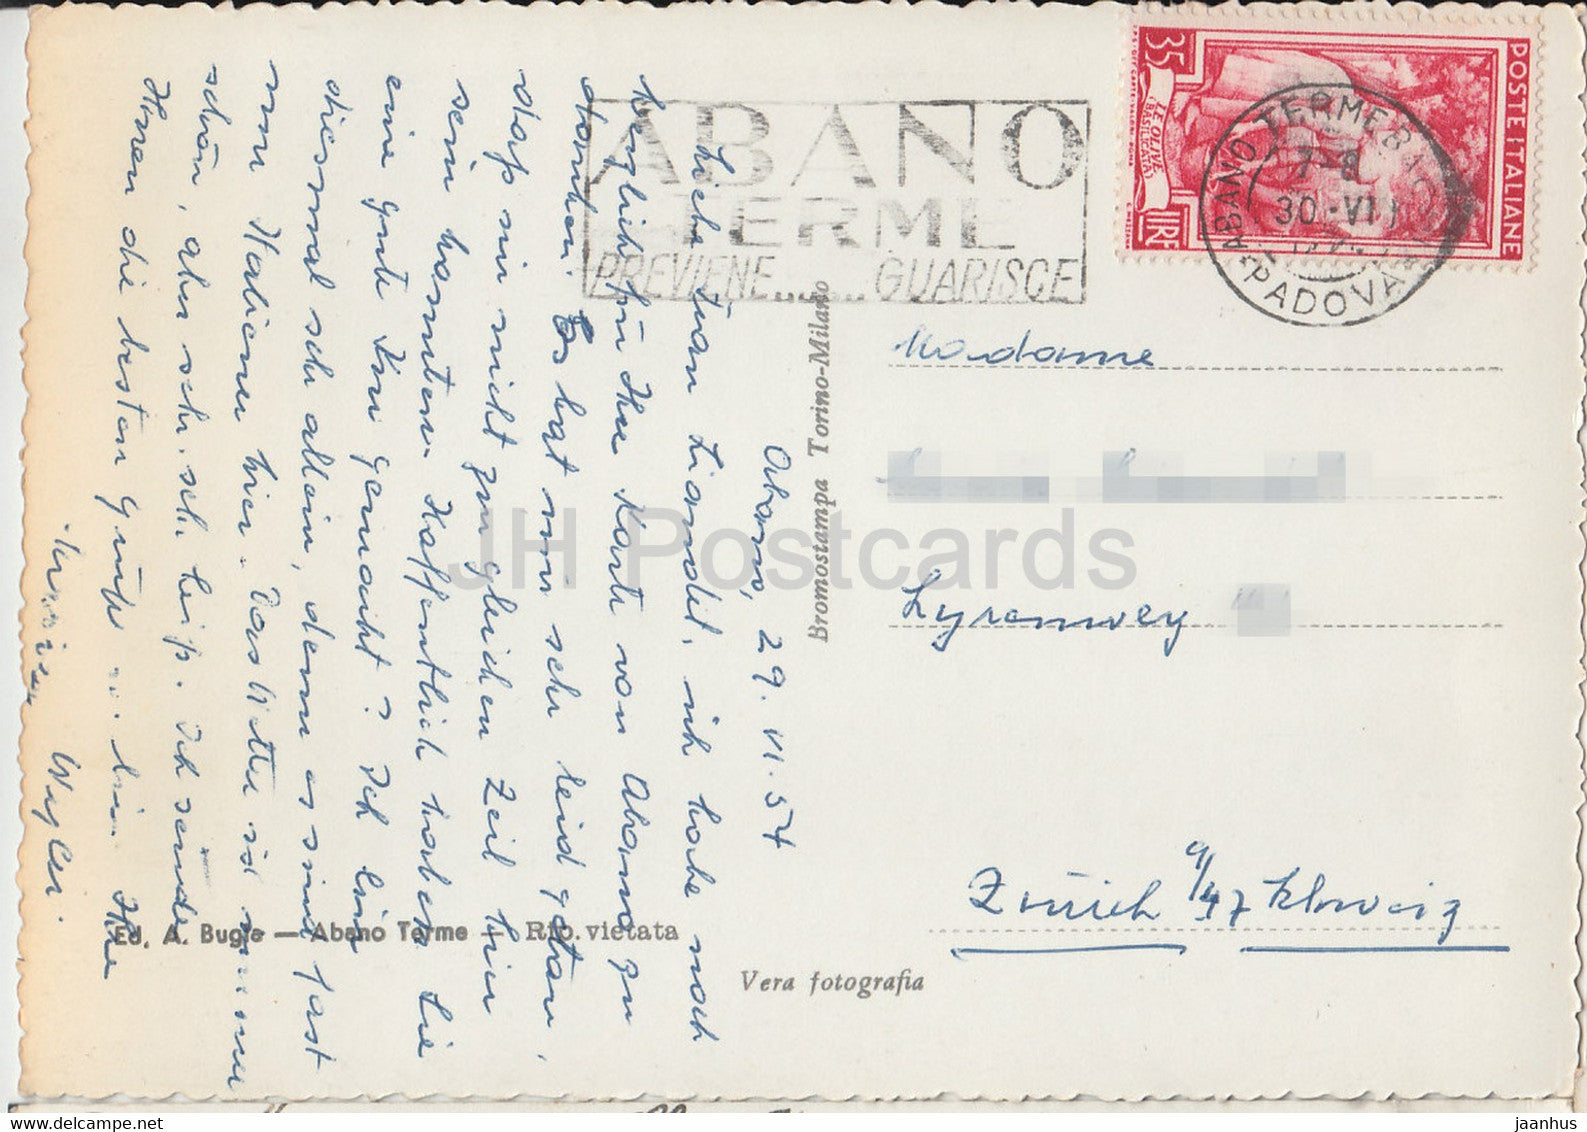 POSTE ITALIANE
35
LIRE
LE OLIVE
(BASILICATA)
ABANO TERME BAGNI
7-8
30·VI
PADOVA
ABANO
TERME
PREVIENE......GUARISCE
Abano, 29. VI. 54
Liebe Frau Liandil, ich habe noch
herzlich für Ihre Karte von Abano zu
danken. Es hat mir sehr leid getan,
dass sie nicht zur gleichen Zeit hier
sein konnten. Hoffentlich haben Sie
eine gute Kur gemacht? Ich bin
diesmal sehr allein, denn es sind fast
nur Italiener hier. Das Wetter ist immer
schön, aber sehr, sehr heiss. Ich sende
Ihnen die besten Grüsse u. bin Ihre
Wyler.
Madame
Lyrenweg
Zürich 9/47 Schweiz
Bromostampa Torino-Milano
Ed. A. Bugle — Abano Terme — Rip. vietata
Vera fotografia
JH Postcards
jaanhus